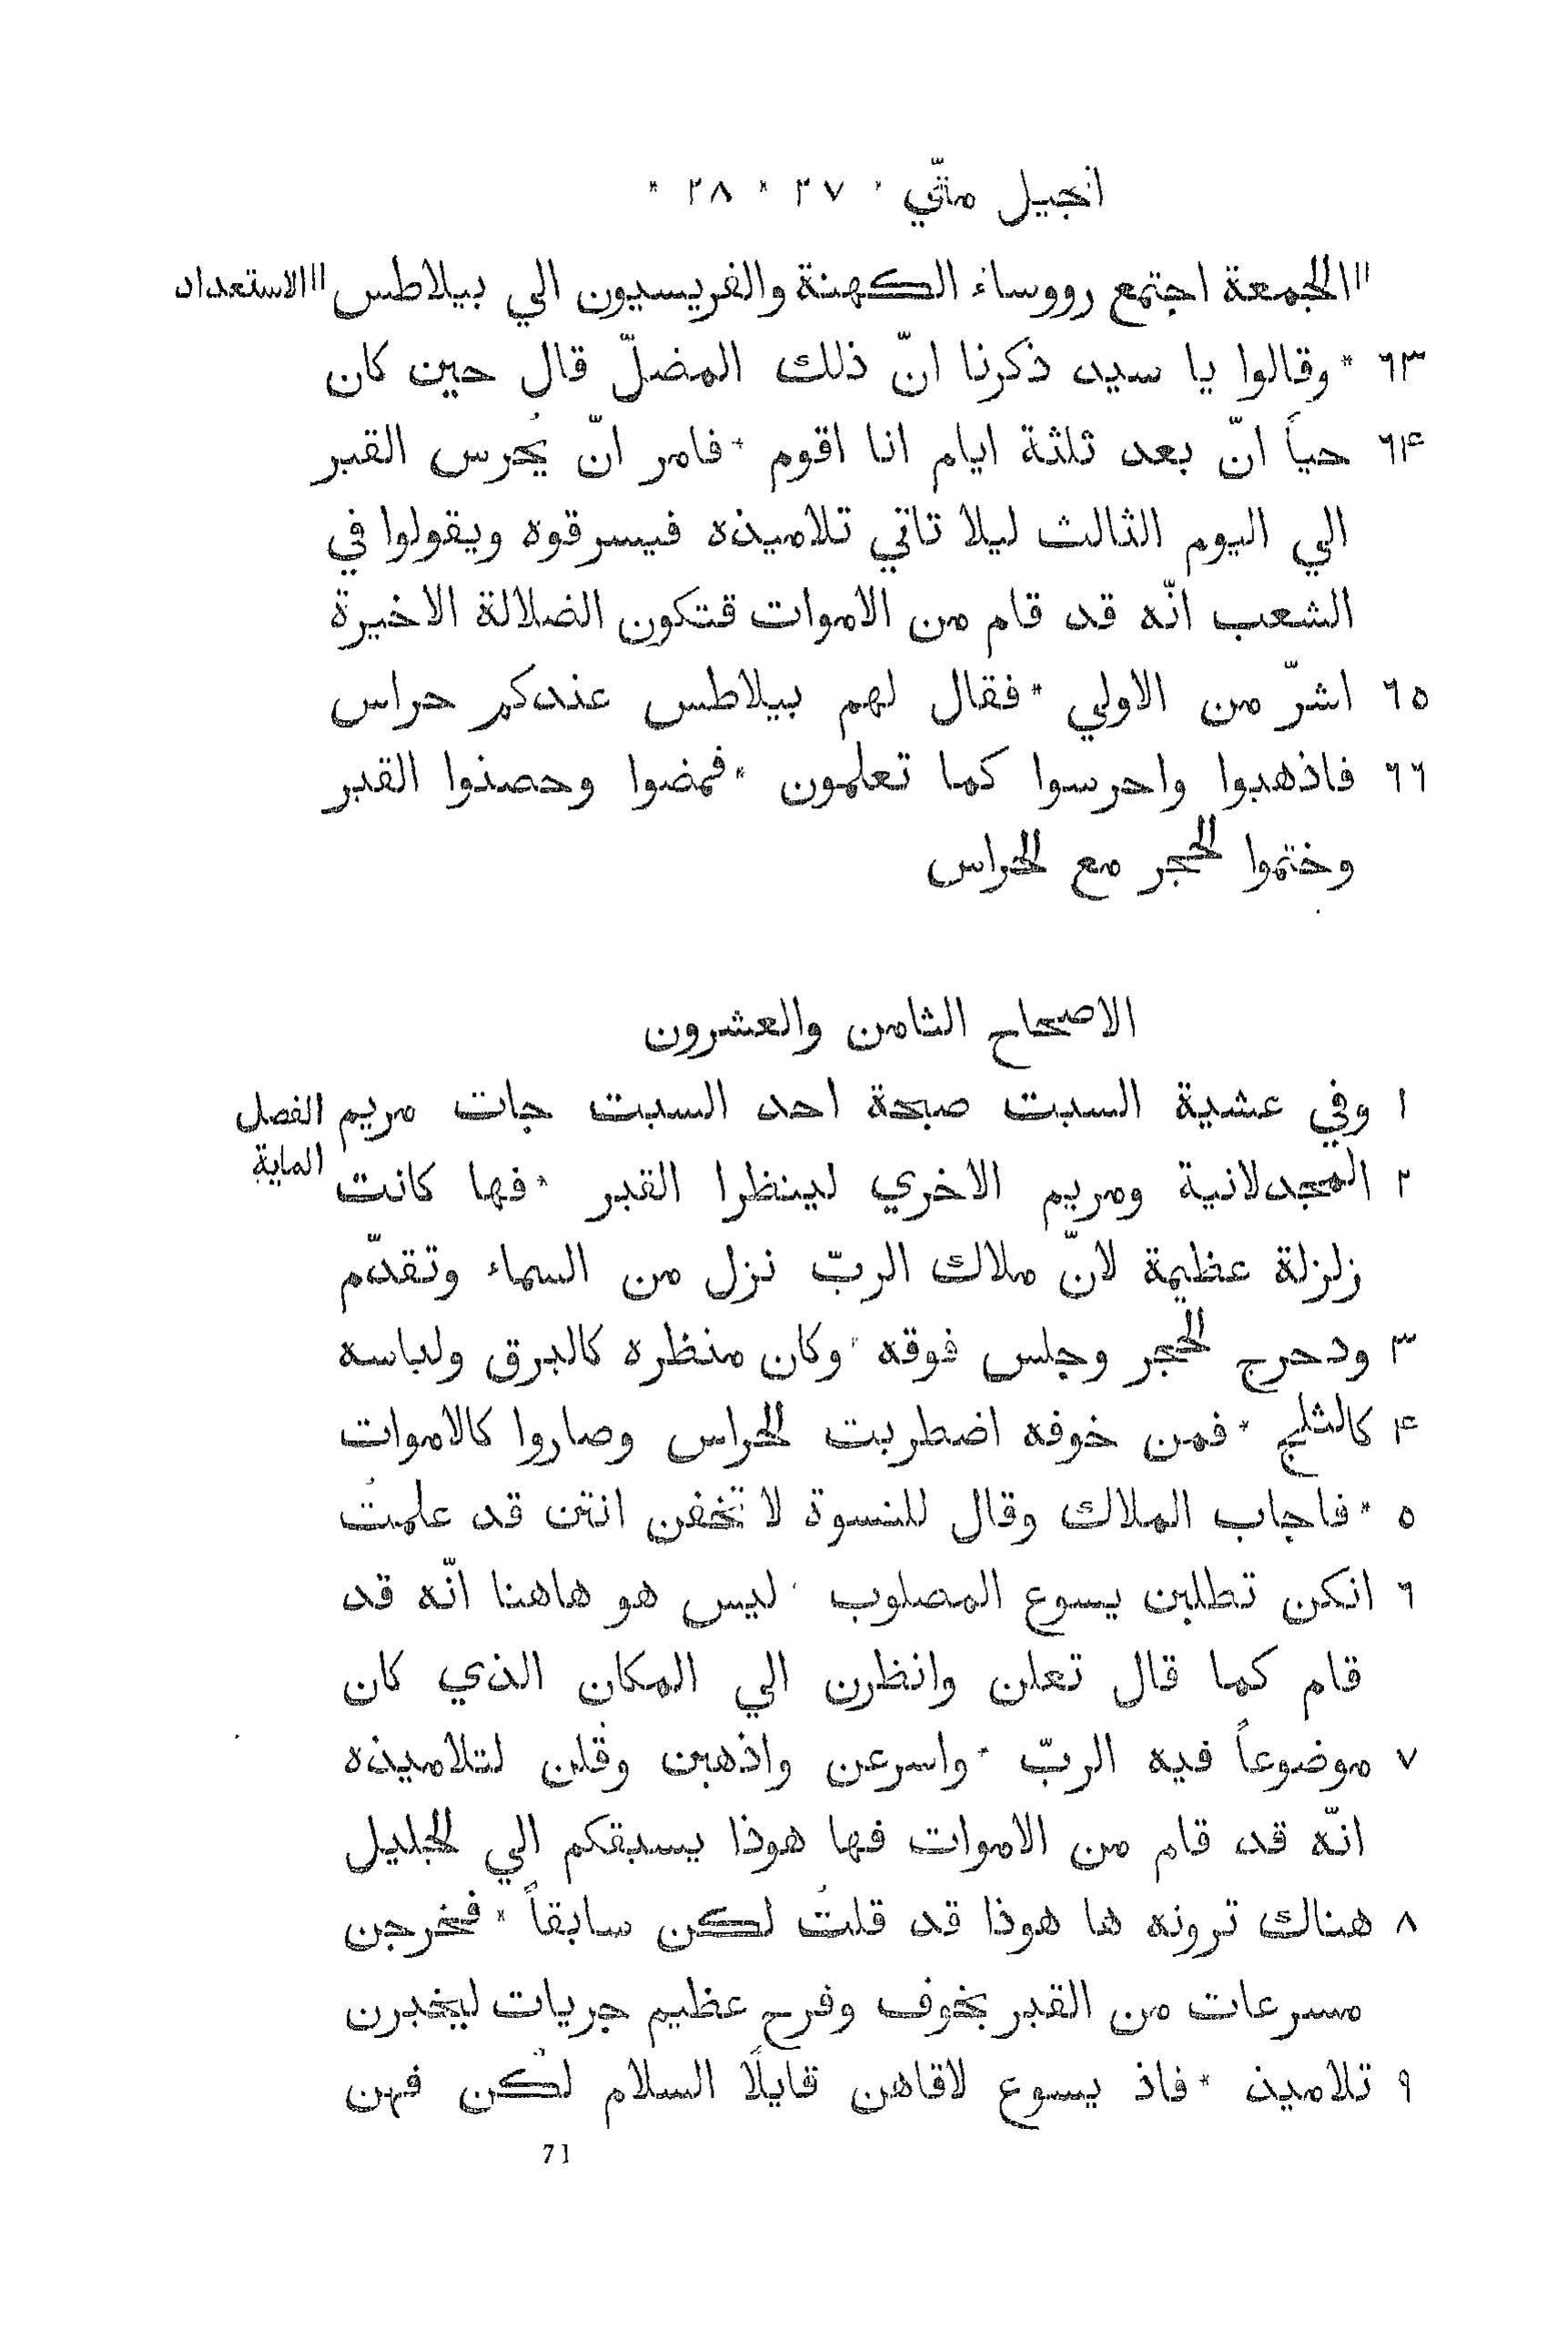 انجيل متّي * ٢٧ * ٢٨ *
"الجمعة اجتمع رووساء الكهنة والفريسيون الي بيلاطس "الاستعداد
٦٣ * وقالوا يا سيد ذكرنا انّ ذلك المضلّ قال حين كان
٦۴ حياً انّ بعد ثلثة ايام انا اقوم * فامر انّ يُحرس القبر
الي اليوم الثالث ليلا تاتي تلاميذه فيسرقوه ويقولوا في
الشعب انّه قد قام من الاموات قتكون الضلالة الاخيرة
٦٥ اشرّ من الاولي * فقال لهم بيلاطس عندكم حراس
٦٦ فاذهبوا واحرسوا كما تعلمون * فمضوا وحصنوا القبر
وختموا الحجر مع الحراس
الاصحاح الثامن والعشرون
١ وفي عشية السبت صبحة احد السبت جات مريم الفصل
٢ المجدلانية ومريم الاخري لينظرا القبر * فها كانت الماية
زلزلة عظيمة لانّ ملاك الربّ نزل من السماء وتقدّم
٣ ودحرج الحجر وجلس فوقه * وكان منظره كالبرق ولباسه
۴ كالثلج * فمن خوفه اضطربت الحراس وصاروا كالاموات
٥ * فاجاب الملاك وقال للنسوة لا تخفن انتن قد علمتُ
٦ انكن تطلبن يسوع المصلوب * ليس هو هاهنا انّه قد
قام كما قال تعلن وانظرن الي المكان الذي كان
٧ موضوعاً فيه الربّ * واسرعن واذهبن وقُلن لتلاميذه
انّه قد قام من الاموات فها هوذا يسبقكم الي الجليل
٨ هناك ترونه ها هوذا قد قلتُ لكن سابقاً * فخرجن
مسرعات من القبر بخوف وفرح عظيم جريات ليخبرن
٩ تلاميذ * فاذ يسوع لاقاهن قايلًا السلام لكُن فهن
71